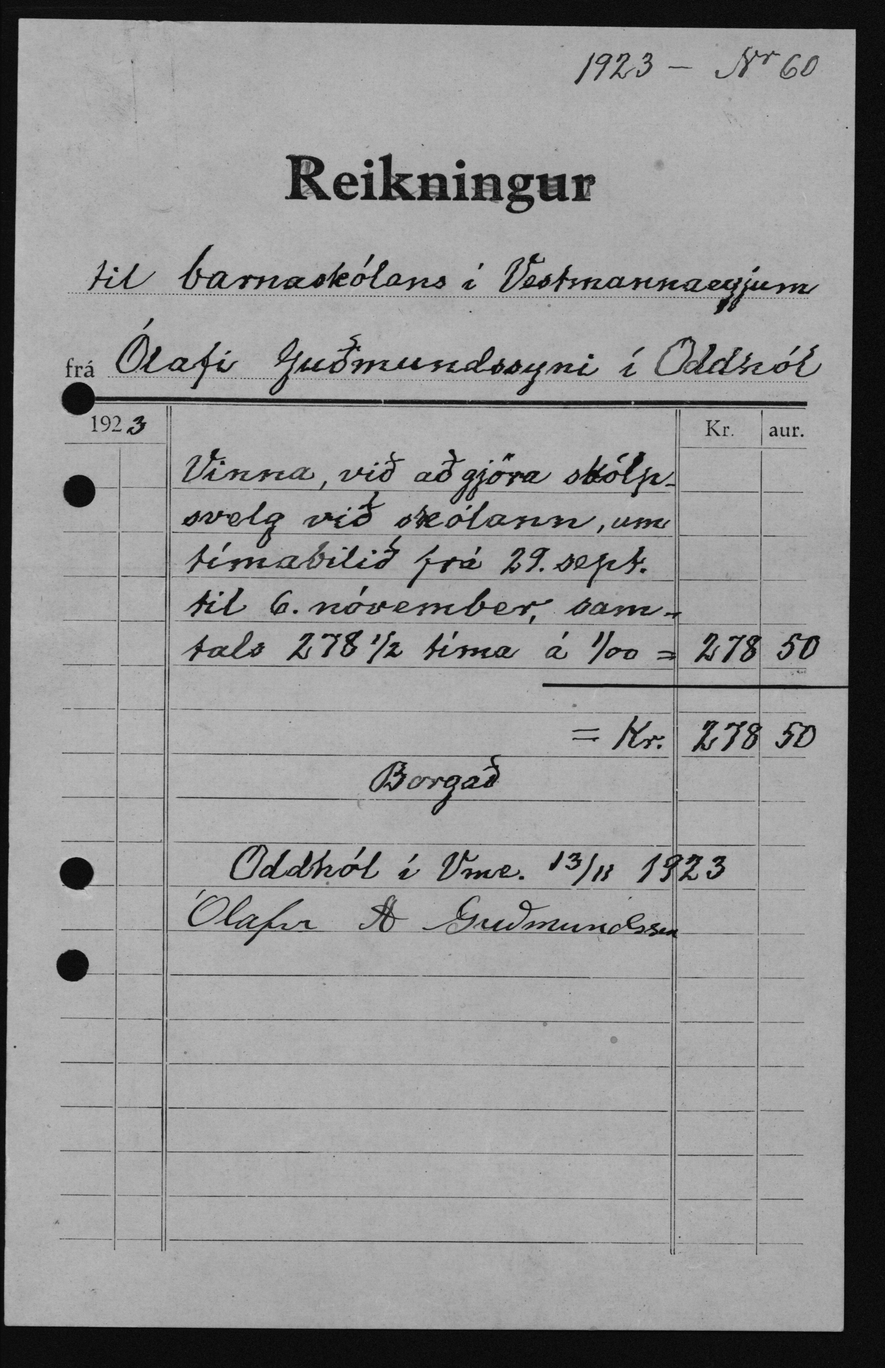 1923 – Nr 60
Reikningur
til barnaskólans í Vestmannaeyjum
frá Ólafi Guðmundssyni í Oddhól
1923 Kr. aur.
Vinna, við að gjöra skólp-
svelg við skólann, um
tímabilið frá 29. sept.
til 6. nóvember, sam-
tals 278 1/2 tíma á 1/00 = 278 50
= Kr. 278 50
Borgað
Oddhól í Vme. 13/11 1923
Ólafur A Guðmundsson